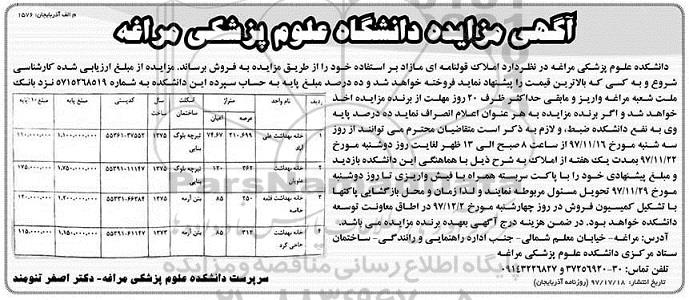 م الف آذربایجان: ۱۵۷۶
آگهی مزایده دانشگاه علوم پزشکی مراغه
دانشکده علوم پزشکی مراغه در نظردارد املاک قولنامه ای مازاد بر استفاده خود را از طریق مزایده به فروش برساند. مزایده از مبلغ ارزیابی شده کارشناسی
شروع و به کسی که بالاترین قیمت را پیشنهاد نماید فروخته خواهد شد و ده درصد مبلغ پایه به حساب سپرده این دانشکده به شماره ۵۷۱۵۲۶۸۵۱۹ نزد بانک
ملت شعبه مراغه واریز و مابقی حداکثر ظرف ۲۰ روز مهلت از برنده مزایده اخذ
خواهد شد و اگر برنده مزایده به هر عنوان اعلام انصراف نماید ده درصد پایه
وی به نفع دانشکده ضبط، و لازم به ذکر است متقاضیان محترم می توانند از روز
سه شنبه مورخ ۹۷/۱۱/۱۶ از ساعت ۸ صبح الی ۱۳ ظهر لغایت روز دوشنبه مورخ
۹۷/۱۱/۲۲ بمدت یک هفته از املاک به شرح ذیل با هماهنگی این دانشکده بازدید
و مبلغ پیشنهادی خود را با پاکت سربسته همراه با فیش واریزی تا روز دوشنبه
مورخ ۹۷/۱۱/۲۹ تحویل مسئول مربوطه نمایند و لذا زمان و محل بازگشایی پاکتها
با تشکیل کمیسیون فروش در روز چهارشنبه مورخ ۹۷/۱۲/۲ در اطاق معاونت توسعه
دانشکده خواهد بود. در ضمن هزینه درج آگهی بعهده برنده مزایده می باشد.
آدرس: مراغه- خیابان معلم شمالی- جنب اداره راهنمایی و رانندگی- ساختمان
ستاد مرکزی دانشکده علوم پزشکی مراغه
تلفن تماس: ۳۰-۳۷۲۵۶۹۲۰ و ۰۹۱۴۳۲۲۶۸۲۷
تاریخ انتشار: ۹۷/۱۷/۱۸ (روزنامه آذربایجان)
ردیف نام واحد متراژ عرصه اعیان اسکلت ساختمان سال ساخت کدپستی مبلغ پایه مبلغ ۱۰٪ پایه
۱ خانه بهداشت علی آباد ۲۱۰،۶۹۹ ۷۴،۶۷ تیرچه بلوک بنایی ۱۳۷۵ ۵۵۳۶۱-۳۷۵۵۲ ۱،۱۰۰،۰۰۰،۰۰۰ ۱۱۰،۰۰۰،۰۰۰
۲ خانه بهداشت ۳۶۲ ۱۲۰ تیرچه بلوک بنایی ۱،۷۵۰،۰۰۰،۰۰۰ ۱۷۵،۰۰۰،۰۰۰
۳ خانه بهداشت قلعه خالصه ۲۵۰ ۸۵ بتن آرمه ۱۳۷۴ ۱،۲۰۰،۰۰۰،۰۰۰ ۱۲۰،۰۰۰،۰۰۰
۴ خانه بهداشت حاجی کرد ۳۱۴ ۸۵ بتن آرمه ۱۳۷۳ ۱،۱۵۰،۰۰۰،۰۰۰ ۱۱۵،۰۰۰،۰۰۰
سرپرست دانشکده علوم پزشکی مراغه- دکتر اصغر تنومند
پایگاه اطلاع رسانی مناقصه و مزایده